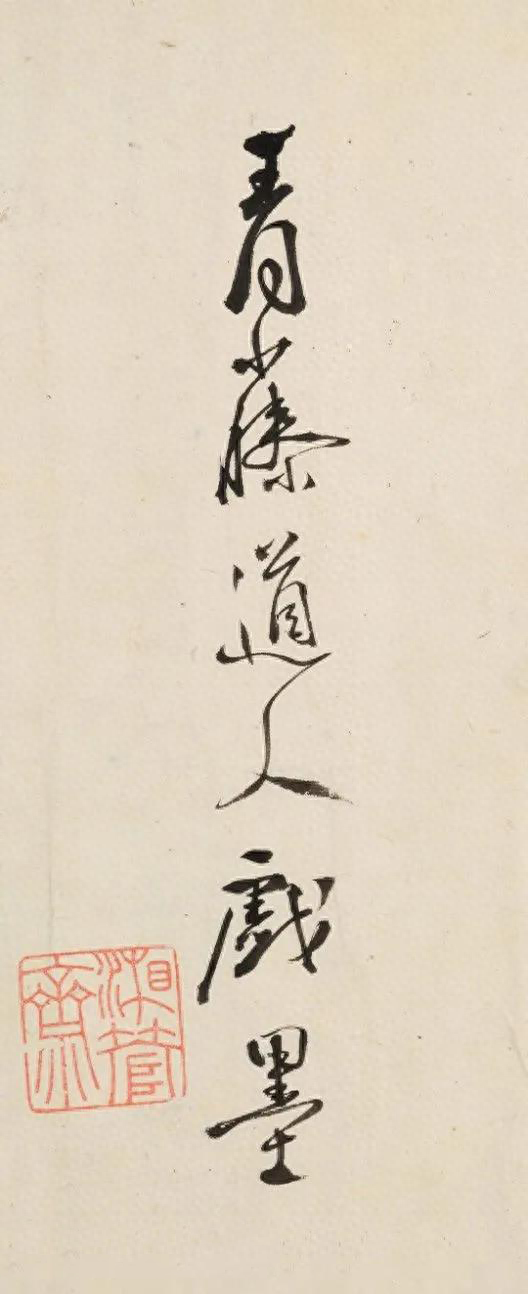 青藤道人戲墨
湘管齋